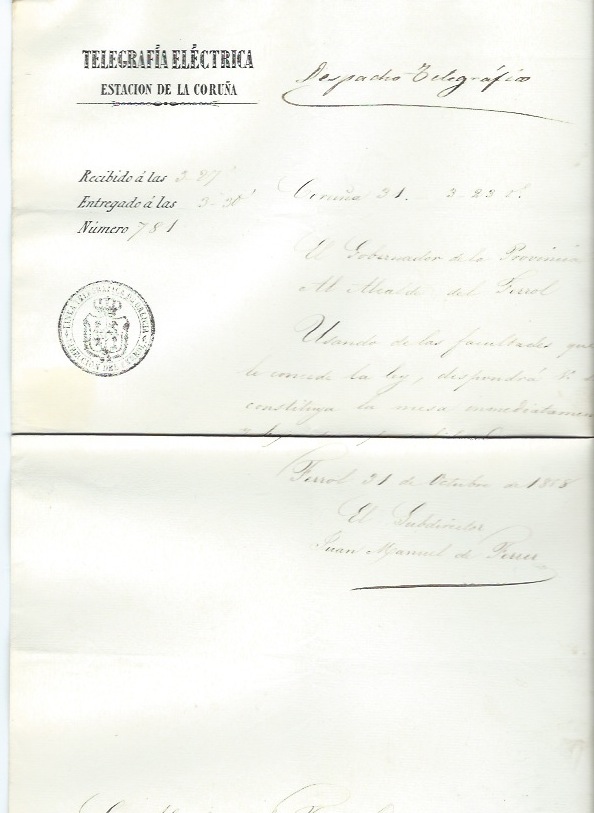 TELEGRAFÍA ELÉCTRICA
ESTACION DE LA CORUÑA
Despacho Telegráfico
Recibido á las 3-27'
Entregado á las 3-30'
Número 781
Coruña 31. 3-23 t.
El Gobernador de la Provincia
Al Alcalde del Ferrol
Usando de las facultades que
le concede la ley, dispondrá V. se
constituya la mesa inmediatamen
Ferrol 31 de Octubre de 1858
El Subdirector
Juan Manuel de Ferrer